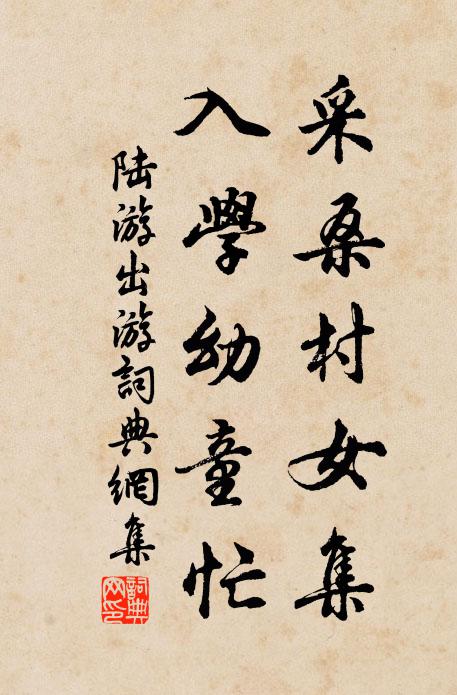 采桑村女集
入學幼童忙
陸游出游詞典網集
詞典網印